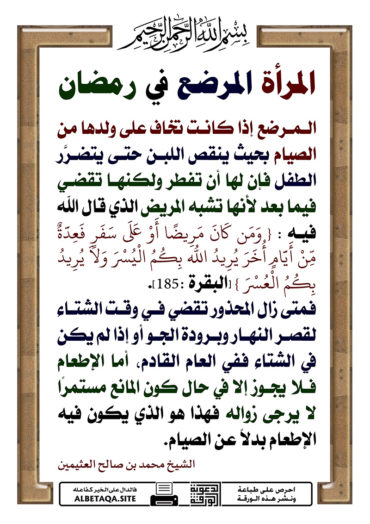 بسم الله الرحمن الرحيم
المرأة المرضع في رمضان
المرضع إذا كانت تخاف على ولدها من
الصيام بحيث ينقص اللبن حتى يتضرَّر
الطفل فإن لها أن تفطر ولكنها تقضي
فيما بعد لأنها تشبه المريض الذي قال الله
فيه : { وَمَن كَانَ مَرِيضًا أَوْ عَلَى سَفَرٍ فَعِدَّةٌ
مِّنْ أَيَّامٍ أُخَرَ يُرِيدُ اللَّهُ بِكُمُ الْيُسْرَ وَلَا يُرِيدُ
بِكُمُ الْعُسْرَ } [البقرة :185].
فمتى زال المحذور تقضي في وقت الشتاء
لقصر النهار وبرودة الجو أو إذا لم يكن
في الشتاء ففي العام القادم، أما الإطعام
فلا يجوز إلا في حال كون المانع مستمرًا
لا يرجى زواله فهذا هو الذي يكون فيه
الإطعام بدلاً عن الصيام.
الشيخ محمد بن صالح العثيمين
احرص على طباعة
ونشر هذه الورقة
الدعوية
الورقة
فالدال على الخير كفاعله
ALBETAQA.SITE